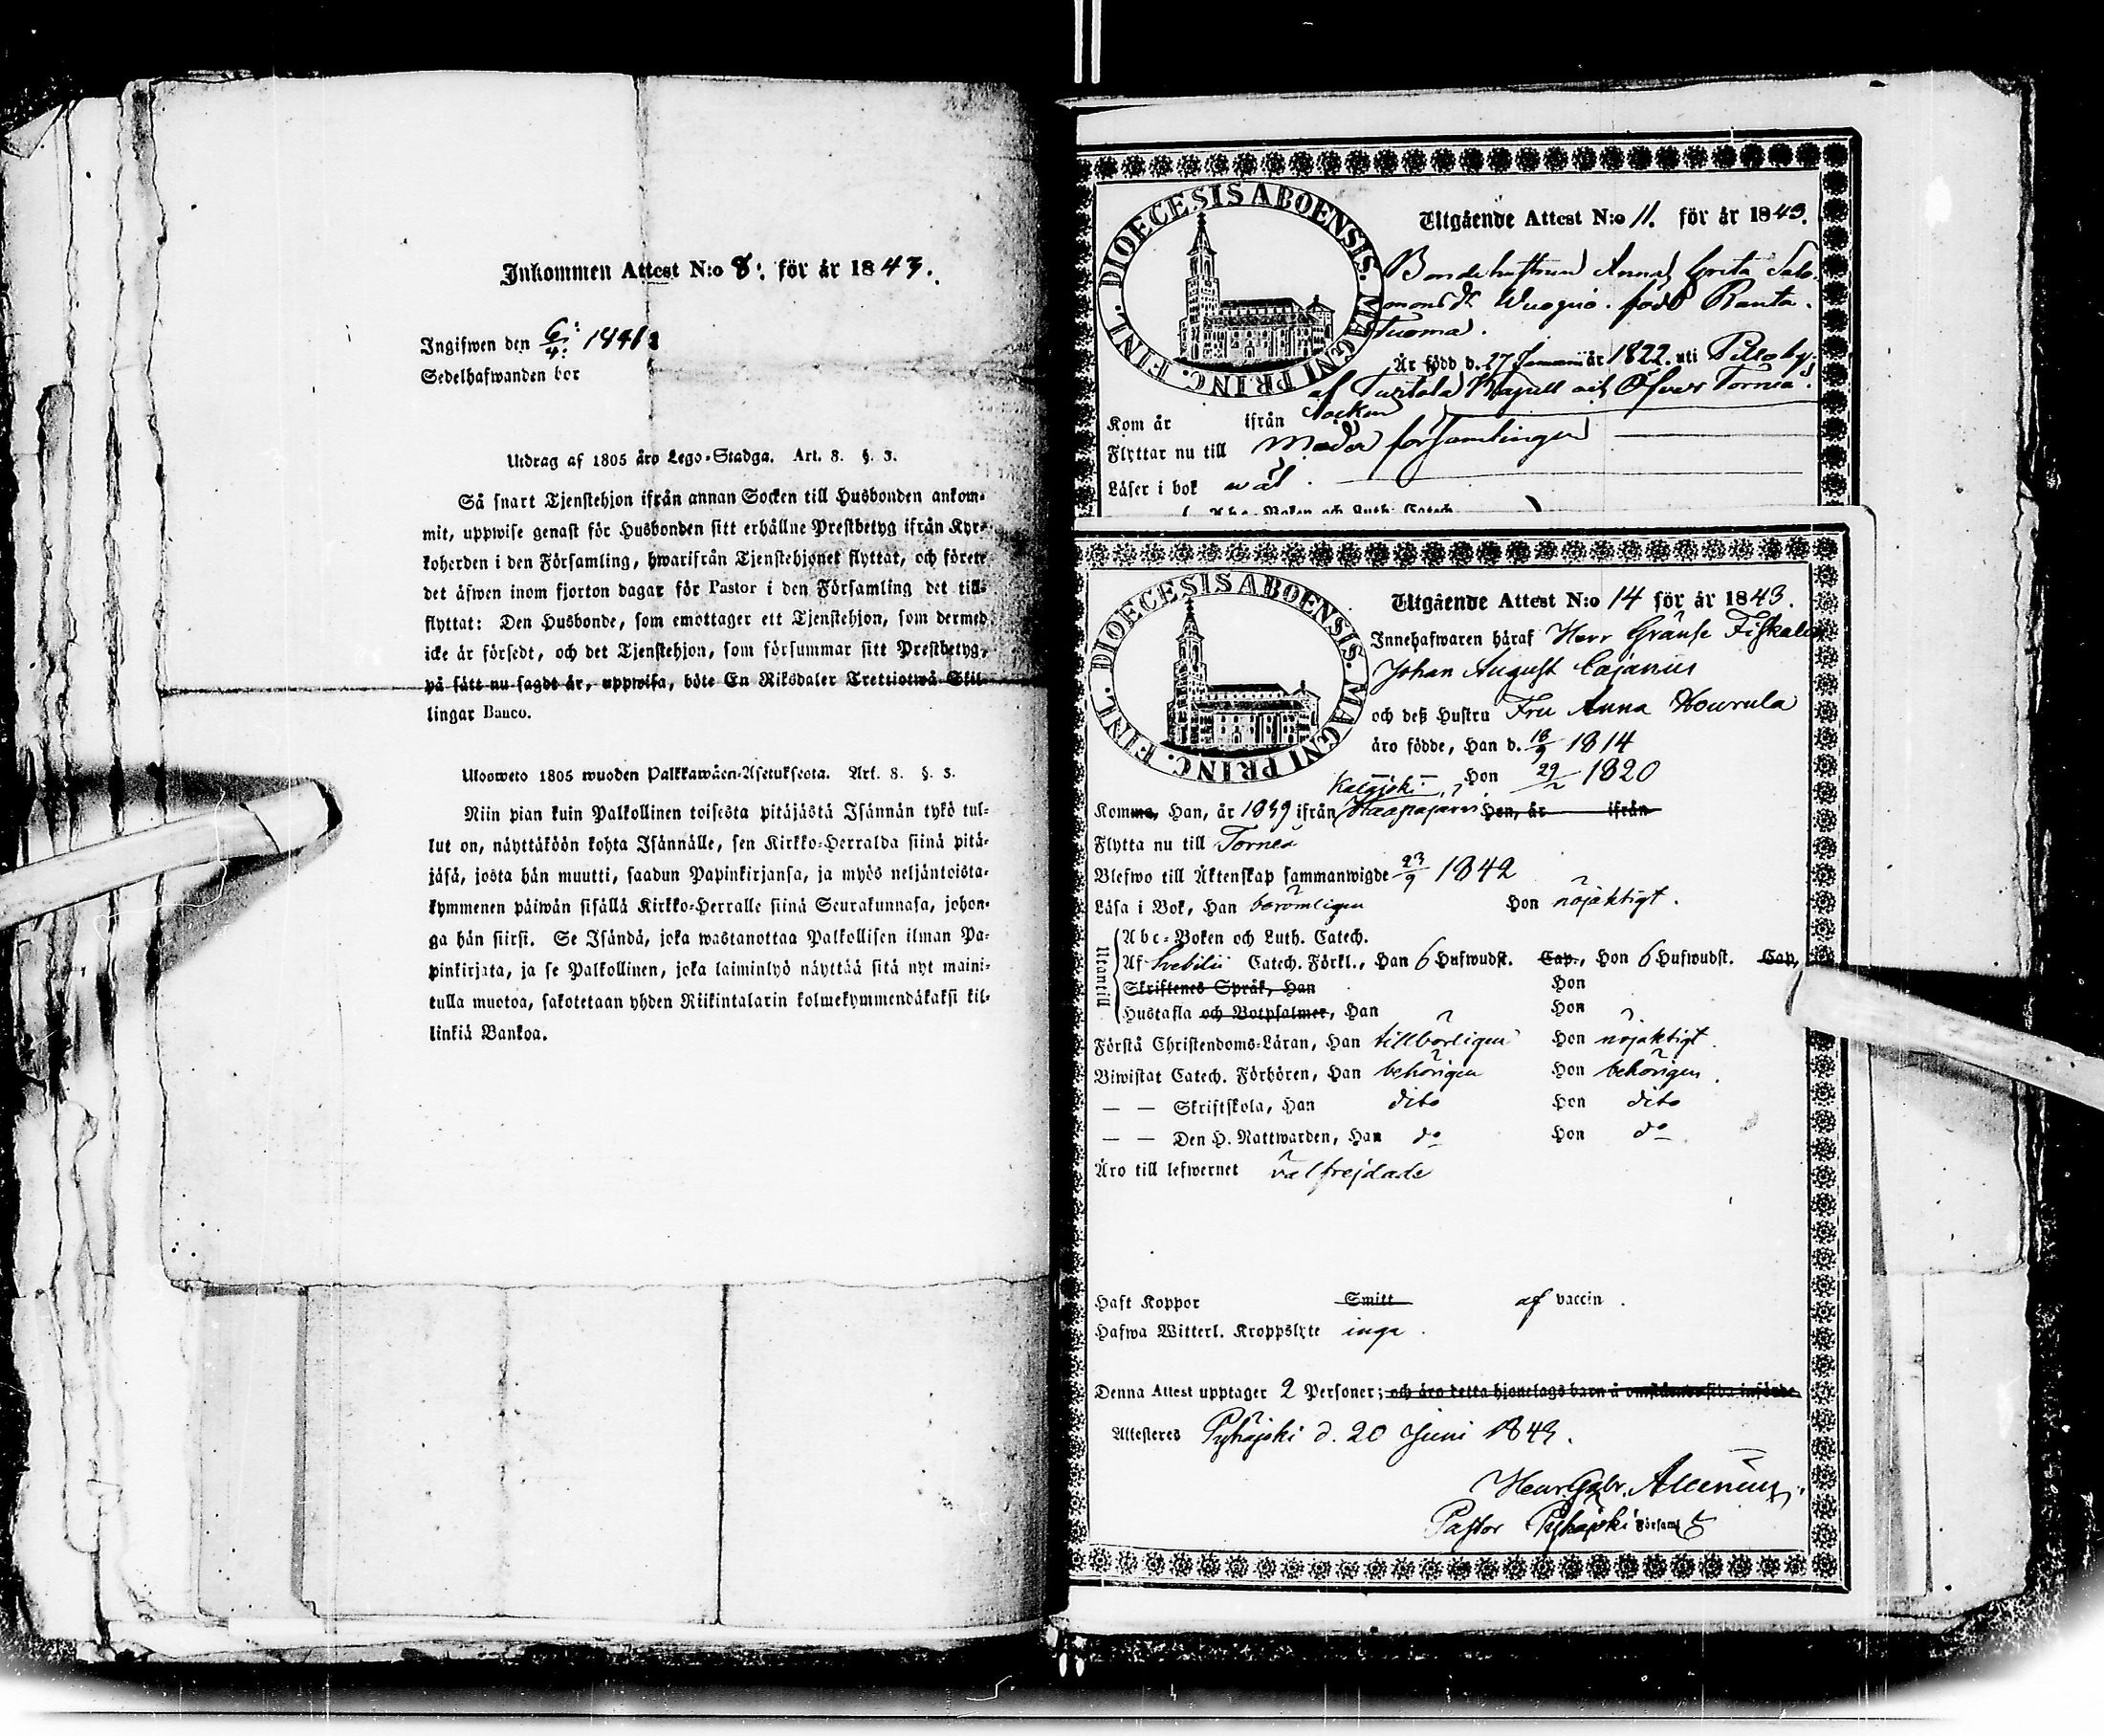 Inkommen Attest N:o 8. för år 1843.
Ingifwen den 6/4. 184
Sedelhafwanden bor
Utdrag af 1805 års Lego-Stadga. Art. 8. §. 3.
Så snart Tjenstehjon ifrån annan Socken till Husbonden ankom-
mit, uppwise genast för Husbonden sitt erhållne Prestbetyg ifrån Kyr-
koherden i den Församling, hwarifrån Tjenstehjonet flyttat, och förete
det äfwen inom fjorton dagar för Pastor i den Församling det till-
flyttat: Den Husbonde, som emottager ett Tjenstehjon, som dermed
icke är försedt, och det Tjenstehjon, som försummar sitt Prestbetyg,
på sätt nu sagdt är, uppwisa, böte En Riksdaler Trettiotwå Skil-
lingar Banco.
Ulosweto 1805 wuoden Palkkawäen-Asetuksesta. Art. 8. §. 3.
Niin pian kuin Palkollinen toisesta pitäjästä Isännän tykö tul-
lut on, näyttäköön kohta Isännälle, sen Kirkko-Herralda siinä pitä-
jäsä, josta hän muutti, saadun Papinkirjansa, ja myös neljäntoista-
kymmenen päiwän sisällä Kirkko-Herralle siinä Seurakunnasa, johon-
ga hän siirsi. Se Isändä, joka wastanottaa Palkollisen ilman Pa-
pinkirjata, ja se Palkollinen, joka laiminlyö näyttää sitä nyt maini-
tulla muotoa, sakotetaan yhden Riikintalarin kolmekymmendäkaksi kil-
linkiä Bankoa.
DIOECESIS ABOENSIS. MAGNI PRINC. FINL.
Utgående Attest N:o 11. för år 1843.
Bondehustrun Anna Greta Salo-
monsdr Wuopio. född Ranta-
Tuoma.
Är född d. 27 Januari år 1822. uti Pello by.
af Turtola Kapell och Öfver Torneå
Socken
Kom år ifrån
Flyttar nu till Moder församlingen
Läser i bok wäl.
Abc-Boken och Luth. Catech.
DIOECESIS ABOENSIS. MAGNI PRINC. FINL.
Utgående Attest N:o 14 för år 1843.
Innehafwaren häraf Herr Gränse Fiskalen
Johan August Cajanus
och deß Hustru Fru Anna Hourula
äro födde, Han d. 18/9 1814
Hon 29/2 1820
Kalajoki
Komma, Han, år 1839 ifrån Haapajärvi Hon, år ifrån
Flytta nu till Torneå
Blefwo till Äktenskap sammanwigde 23/9 1842
Läsa i Bok, Han berömligen Hon nöjaktigt.
Utantill
Abc-Boken och Luth. Catech.
Af Svebilii Catech. Förkl., Han 6 Hufwudst. Cap., Hon 6 Hufwudst. Cap.
Skriftenes Språk, Han Hon
Hustafla och Botpsalmer, Han Hon
Förstå Christendoms-Läran, Han tillbörligen Hon nöjaktigt.
Biwistat Catech. Förhören, Han behörigen Hon behörigen.
— — Skriftskola, Han dito Hon dito
— — Den H. Nattwarden, Han do Hon do
Äro till lefwernet välfrejdade
Haft Koppor Smitt af vaccin.
Hafwa Witterl. Kroppslyte inga.
Denna Attest upptager 2 Personer; och äro detta hjonelags barn å omstående sida införde.
Attesteres Pyhäjoki d. 20 Juni 1843.
Henr. Gabr. Alcenius.
Pastor Pyhäjoki Församl